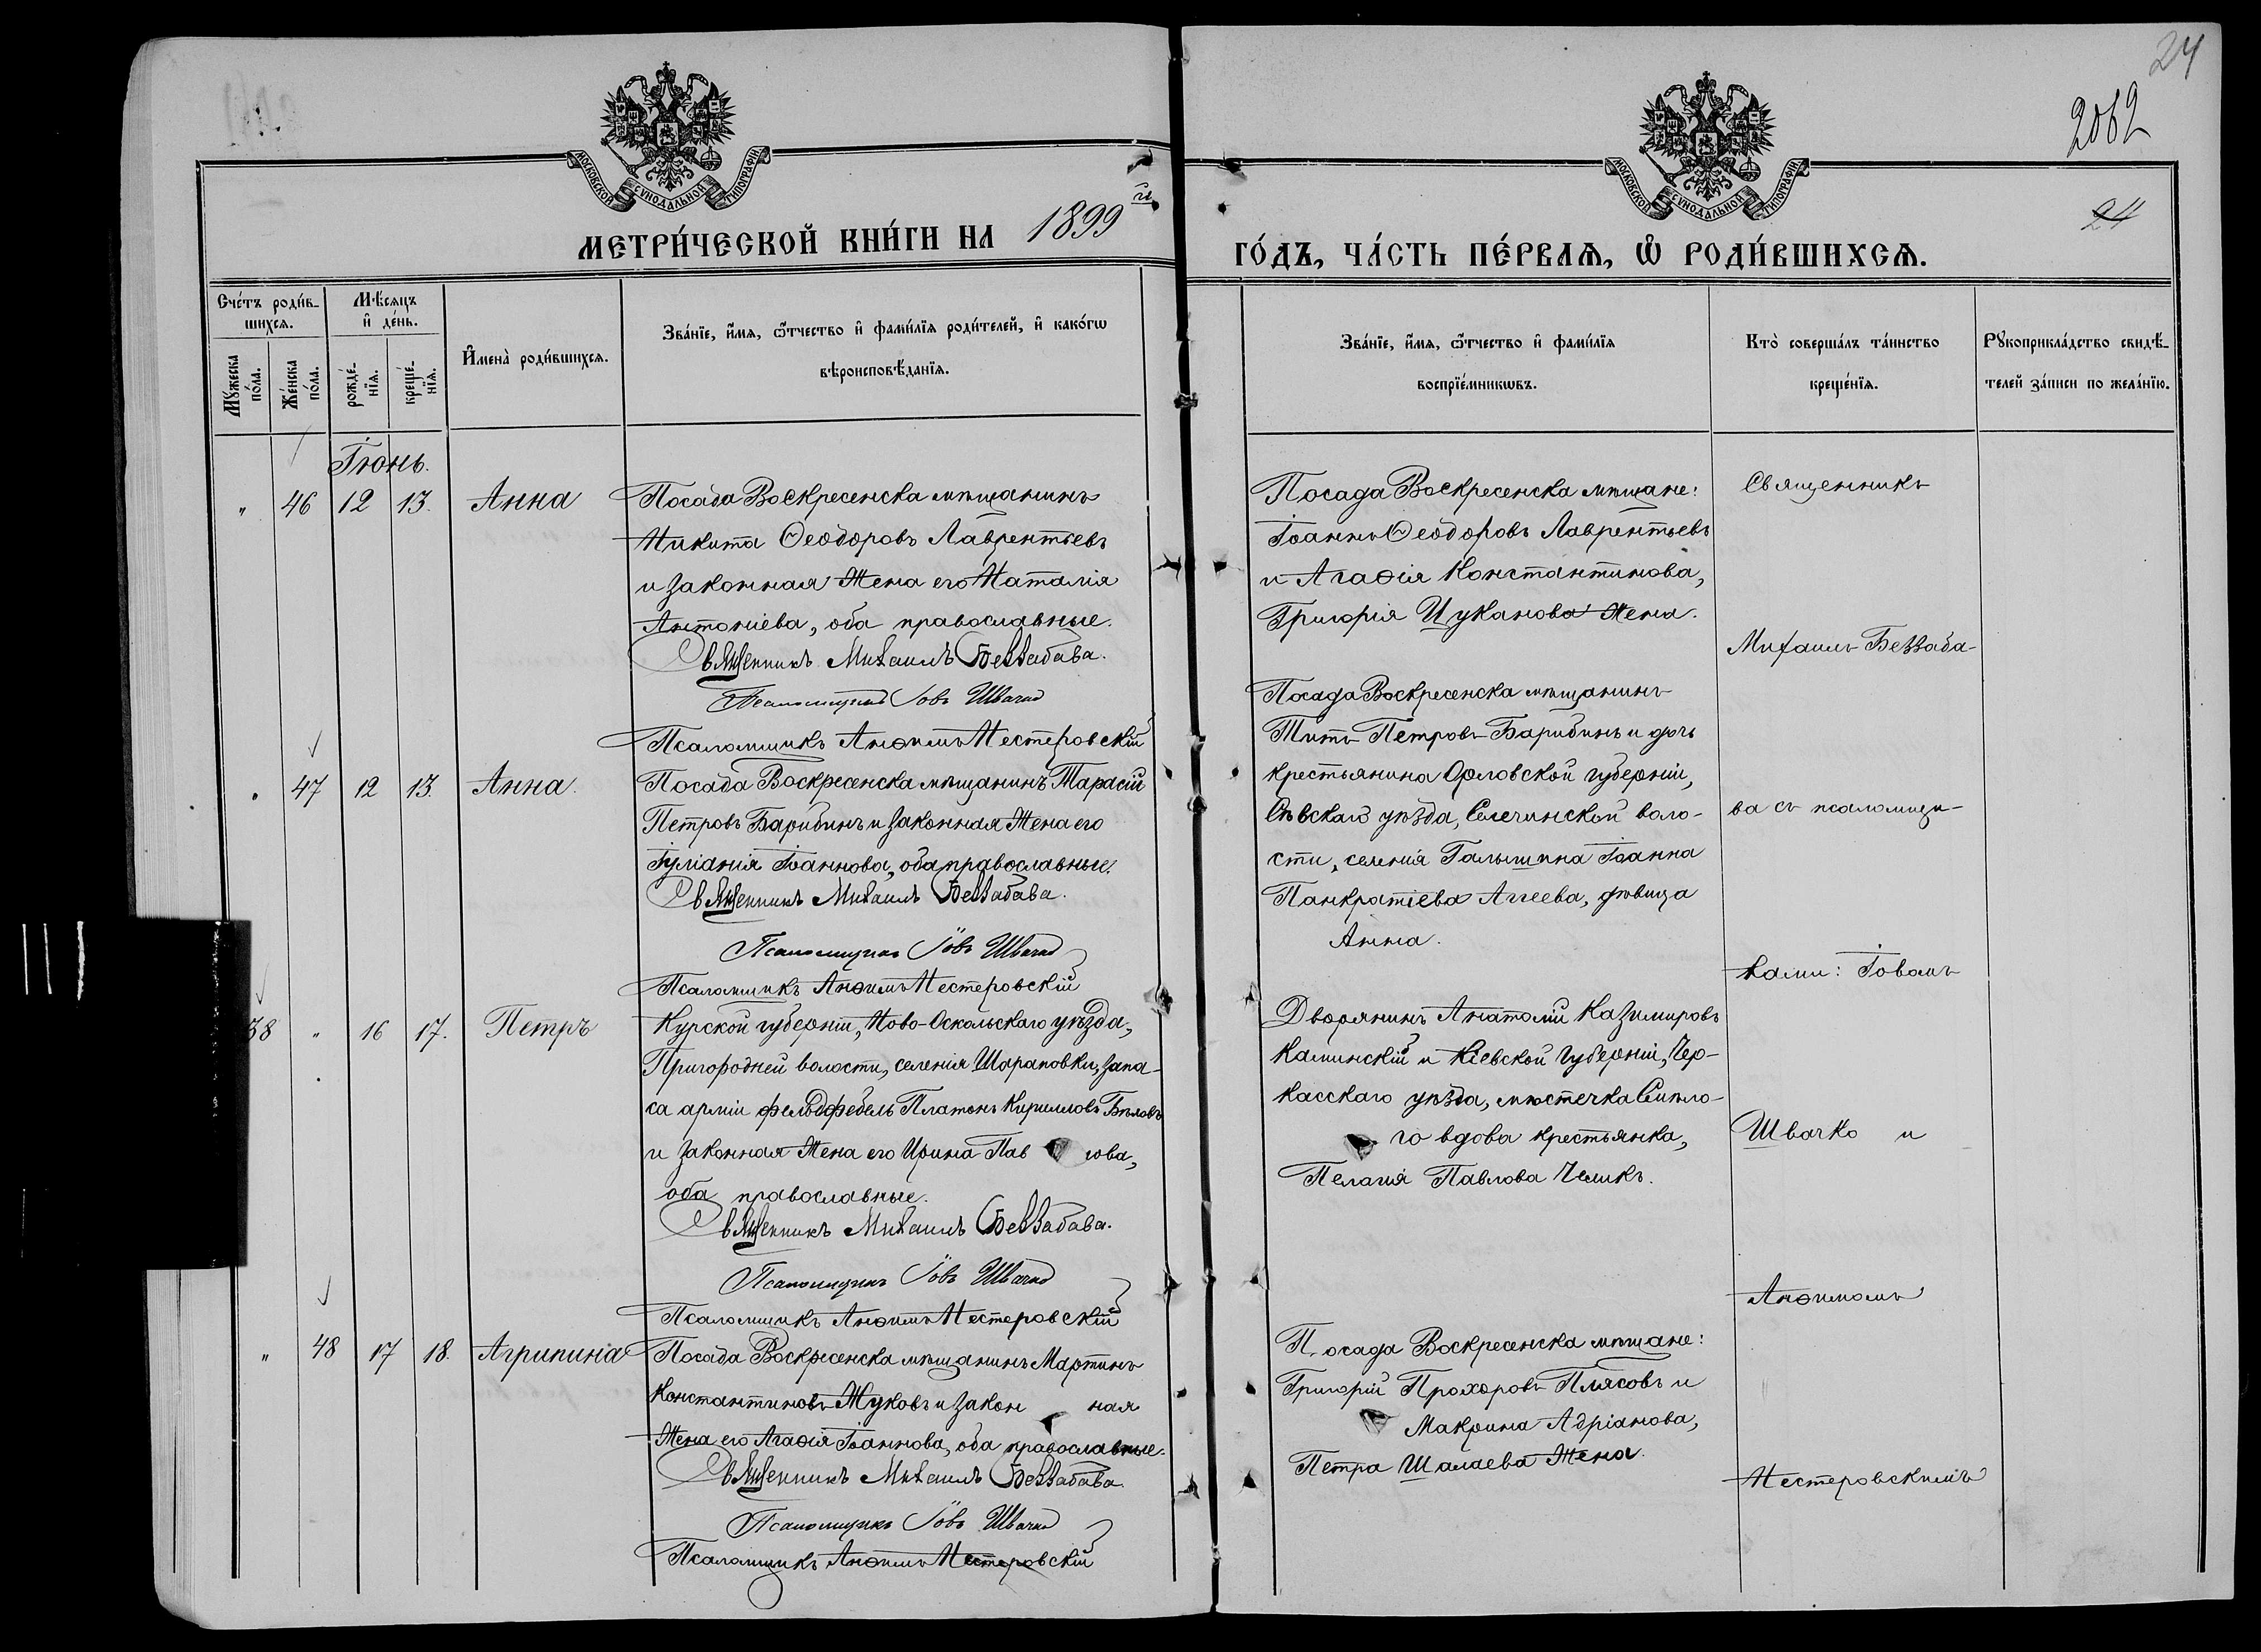 24
2062
24
МОСКОВСКОЙ СУНОДАЛЬНОЙ ТИПОГРАФІИ
МОСКОВСКОЙ СУНОДАЛЬНОЙ ТИПОГРАФІИ
МЕТРИ́ЧЕСКОЙ КНИ́ГИ НА 1899 й
ГО́ДЪ, ЧА́СТЬ ПЕ́РВАѦ, Ѡ҆ РОДИ́ВШИХСѦ.
Сче́тъ роди́в-
шихся.
Мѣсяцъ
и҆ де́нь.
Мꙋ́жеска
по́ла.
Же́нска
по́ла.
рожде́-
нїѧ.
креще́-
нїѧ.
И҆мена̀ роди́вшихся.
Зва́нїе, и҆́мѧ, ѻ҆́тчество и҆ фами́лїѧ роди́телей, и҆ како́гѡ
вѣроисповѣ́данїѧ.
Зва́нїе, и҆́мѧ, ѻ҆́тчество и҆ фами́лїѧ
воспрїе́мникѡвъ.
Кто̀ соверша́лъ та́инство
креще́нїѧ.
Рꙋкоприкла́дство свидѣ́-
телей за́писи по жела́нїю.
Іюнь.
" 46 12 13. Анна
Посада Воскресенска мѣщанинъ
Никита Ѳеодоровъ Лаврентьевъ
и законная жена его Наталія
Антоніева, оба православные.
Священникъ Михаилъ Беззабава.
Псаломщикъ Іовъ Швачко
Псаломщикъ Анѳимъ Нестеровскій
Посада Воскресенска мѣщане:
Іоаннъ Ѳеодоровъ Лаврентьевъ
и Агаѳія Константинова,
Григорія Цуканова жена.
" 47 12 13. Анна.
Посада Воскресенска мѣщанинъ Тарасій
Петровъ Барибинъ и законная жена его
Іуліанія Іоаннова, оба православные.
Священникъ Михаилъ Беззабава.
Псаломщикъ Іовъ Швачко
Псаломщикъ Анѳимъ Нестеровскій
Посада Воскресенска мѣщанинъ
Титъ Петровъ Барибинъ и дочь
крестьянина Орловской губерніи,
Сѣвскаго уѣзда, Селечинской воло-
сти, селенія Іоанна
Панкратіева Аггеева, дѣвица
Анна.
38 " 16 17. Петръ
Курской губерніи, Ново-Оскольскаго уѣзда,
Пригородней волости, селенія Шараповки, запа-
са арміи фельдфебель Платонъ Кирилловъ Бѣловъ
и законная жена его Ирина Пав лова,
оба православные.
Священникъ Михаилъ Беззабава.
Псаломщикъ Іовъ Швачко
Псаломщикъ Анѳимъ Нестеровскій
Дворянинъ Анатолій Казимировъ
Калинскій и Кіевской губерніи, Чер-
касскаго уѣзда, мѣстечка Смѣло-
го вдова крестьянка,
Пелагія Павлова
" 48 17 18. Агрипинія
Посада Воскресенска мѣщанинъ Мартинъ
Константиновъ Жуковъ и закон ная
жена его Агаѳія Іоаннова, оба православные.
Священникъ Михаилъ Беззабава.
Псаломщикъ Іовъ Швачко
Псаломщикъ Анѳимъ Нестеровскій
Посада Воскресенска мѣщане:
Григорій Прохоровъ Плясовъ и
Макрина Адріанова,
Петра Шалаева жена.
Священникъ
Михаилъ Беззаба-
ва съ псаломщи-
ками: Іовомъ
Швачко и
Анѳимомъ
Нестеровскимъ